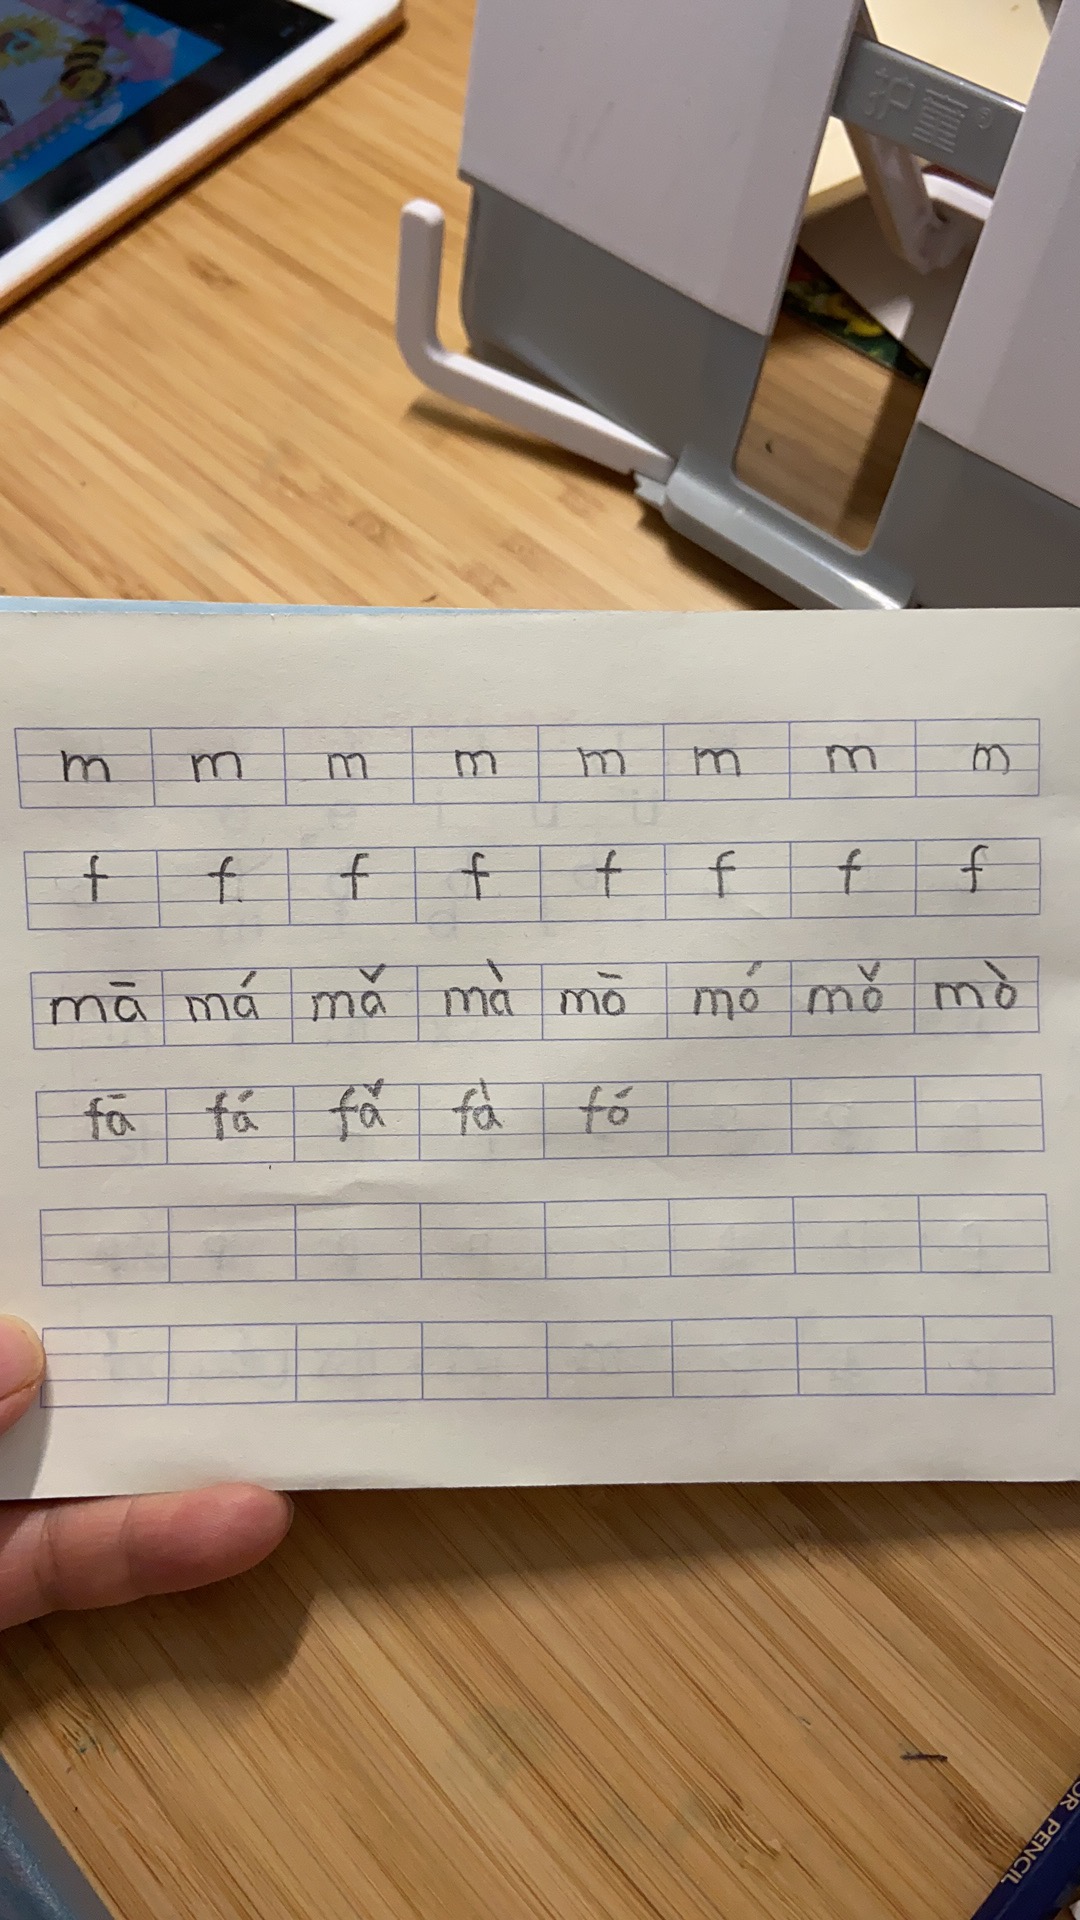 护童®
m m m m m m m m
f f f f f f f f
mā má mǎ mà mō mó mǒ mò
fā fá fǎ fà fó
OR PENCIL